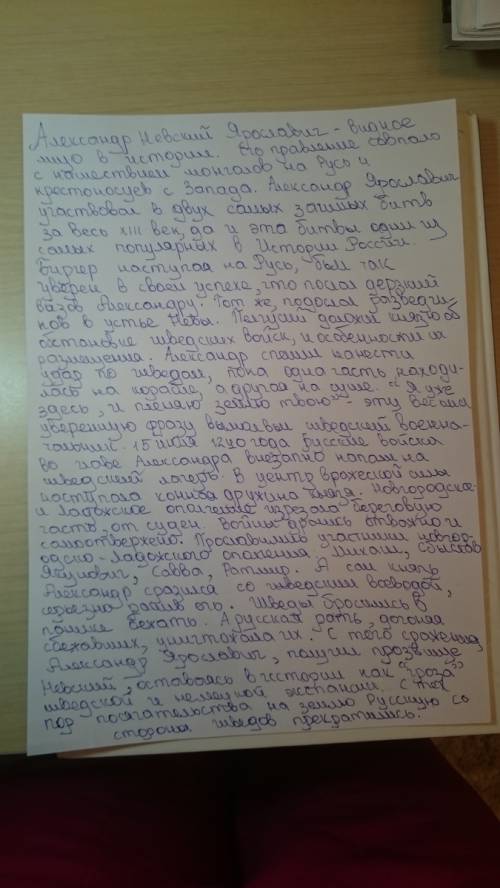 Александр Невский Ярославич - видное
лицо в истории. Его правление совпало
с нашествием монголов на Русь и
крестоносцев с Запада. Александр Ярославич
участвовал в двух самых битв
за весь XIII век, да и эта битвы один из
самых популярных в Истории России.
Биргер наступая на Русь, был так
уверен в своем успехе, что послал дерзкий
вызов Александру. Тот же, подослал разведчи-
ков в устье Невы. Пелгусий должил князю об
обстановке шведских войск, и особенности их
размещения. Александр спешил нанести
удар по шведам, пока одна часть находи-
лась на корабле, а другая на суше. "Я уже
здесь, и пленяю землю твою" - эту весьма
уверенную фразу вымолвил шведский военна-
чальник. 15 июля 1240 года Русские войска
во главе Александра внезапно напали на
шведский лагерь. В центр вражеской силы
поступала конная дружина князя. Новгородское
и Ладожское ополчение береговую
часть, от суден. Войны дрались отважно и
самоотвержено. Прославились участники новгор-
одско-ладожского ополчения. Михаил, Сбыслов
Якунович, Савва, Ратмир. А сам князь
Александр сразился со шведским воеводой,
серьезно ранив его. Шведы бросились в
панике бежать. А русская рать, догоняя
сбежавших, уничтожала их. С того сражения,
Александр Ярославич, получил прозвище
Невский, оставаясь в истории как "гроза"
шведской и немецкой экспансии. С тех
пор посягательства на землю Русскую со
стороны шведов прекратились.